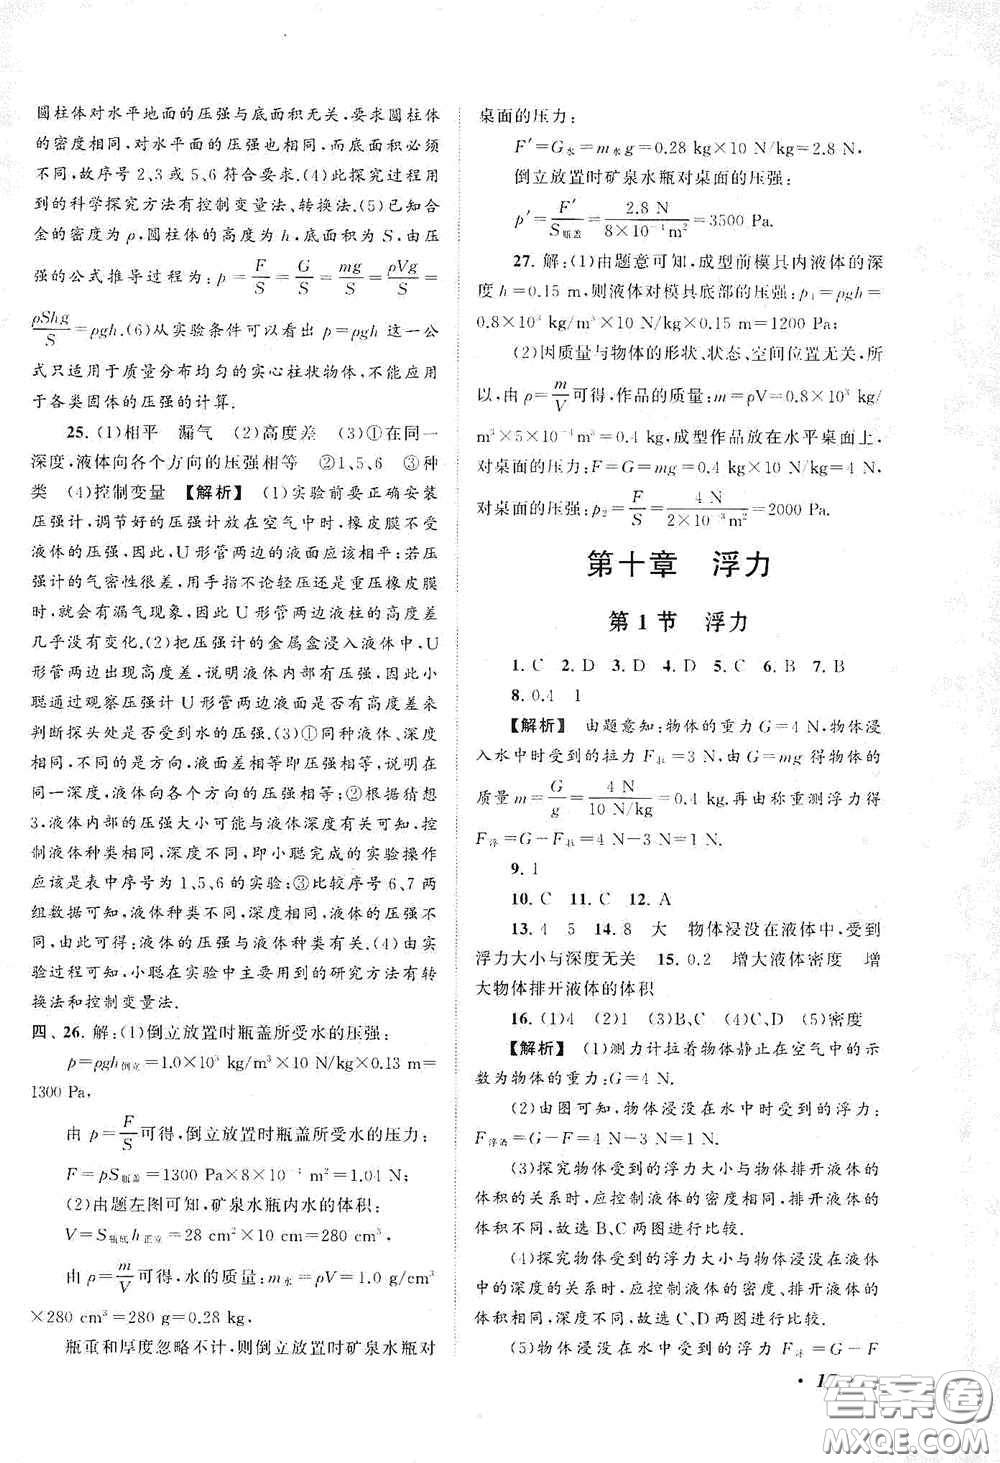 圆柱体对水平地面的压强与底面积无关,要求圆柱体
的密度相同,对水平面的压强也相同,而底面积必须
不同,故序号 2、3 或 5、6 符合要求.(4)此探究过程用
到的科学探究方法有控制变量法、转换法.(5)已知合
金的密度为 ρ,圆柱体的高度为 h,底面积为 S,由压
强的公式推导过程为: p = F/S = G/S = mg/S = ρVg/S =
ρShg/S =ρgh.(6)从实验条件可以看出 p=ρgh 这一公
式只适用于质量分布均匀的实心柱状物体,不能应用
于各类固体的压强的计算.
25. (1)相平 漏气 (2)高度差 (3)①在同一
深度,液体向各个方向的压强相等 ②1、5、6 ③种
类 (4)控制变量 【解析】 (1)实验前要正确安装
压强计,调节好的压强计放在空气中时,橡皮膜不受
液体的压强,因此,U 形管两边的液面应该相平;若压
强计的气密性很差,用手指不论轻压还是重压橡皮膜
时,就会有漏气现象,因此 U 形管两边液柱的高度差
几乎没有变化.(2)把压强计的金属盒浸入液体中,U
形管两边出现高度差,说明液体内部有压强,因此小
聪通过观察压强计 U 形管两边液面是否有高度差来
判断探头处是否受到水的压强.(3)①同种液体、深度
相同,不同的是方向,液面差相等即压强相等,说明在
同一深度,液体向各个方向的压强相等;②根据猜想
3,液体内部的压强大小可能与液体深度有关可知,控
制液体种类相同,深度不同,即小聪完成的实验操作
应该是表中序号为 1、5、6 的实验;③比较序号 6、7 两
组数据可知,液体种类不同,深度相同,液体的压强不
同,由此可得:液体的压强与液体种类有关.(4)由实
验过程可知,小聪在实验中主要用到的研究方法有转
换法和控制变量法.
四、26. 解:(1)倒立放置时瓶盖所受水的压强:
p=ρgh倒立=1.0×10³ kg/m³×10 N/kg×0.13 m=
1300 Pa,
由 p= F/S 可得,倒立放置时瓶盖所受水的压力:
F=pS瓶盖=1300 Pa×8×10⁻⁴ m²=1.04 N;
(2)由题左图可知,矿泉水瓶内水的体积:
V=S瓶底h正立=28 cm²×10 cm=280 cm³,
由 ρ= m/V 可得,水的质量:m水=ρV=1.0 g/cm³
×280 cm³=280 g=0.28 kg,
瓶重和厚度忽略不计,则倒立放置时矿泉水瓶对
桌面的压力:
F′=G水=m水g=0.28 kg×10 N/kg=2.8 N,
倒立放置时矿泉水瓶对桌面的压强:
p′= F′/S瓶盖 = 2.8 N/8×10⁻⁴m² =3500 Pa.
27. 解:(1)由题意可知,成型前模具内液体的深
度 h=0.15 m,则液体对模具底部的压强:p₁=ρgh=
0.8×10³ kg/m³×10 N/kg×0.15 m=1200 Pa;
(2)因质量与物体的形状、状态、空间位置无关,所
以,由 ρ= m/V 可得,作品的质量:m=ρV=0.8×10³ kg/
m³×5×10⁻⁴m³=0.4 kg,成型作品放在水平桌面上,
对桌面的压力:F=G=mg=0.4 kg×10 N/kg=4 N,
对桌面的压强:p₂= F/S = 4 N/2×10⁻³m² =2000 Pa.
第十章 浮力
第 1 节 浮力
1. C 2. D 3. D 4. D 5. C 6. B 7. B
8. 0.4 1
【解析】 由题意知:物体的重力 G=4 N,物体浸
入水中时受到的拉力 F拉=3 N,由 G=mg 得物体的
质量 m= G/g = 4 N/10 N/kg =0.4 kg.再由称重测浮力得
F浮=G-F拉=4 N-3 N=1 N.
9. 1
10. C 11. C 12. A
13. 4 5 14. 8 大 物体浸没在液体中,受到
浮力大小与深度无关 15. 0.2 增大液体密度 增
大物体排开液体的体积
16. (1)4 (2)1 (3)B、C (4)C、D (5)密度
【解析】 (1)测力计拉着物体静止在空气中的示
数为物体的重力:G=4 N.
(2)由图可知,物体浸没在水中时受到的浮力:
F浮酒=G-F=4 N-3 N=1 N.
(3)探究物体受到的浮力大小与物体排开液体的
体积的关系时,应控制液体的密度相同,排开液体的
体积不同,故选 B、C 两图进行比较.
(4)探究物体受到的浮力大小与物体浸没在液体
中的深度的关系时,应控制液体的密度、排开液体的
体积相同,改变深度,故选用 C、D 两图进行比较.
(5)物体浸没在水中时受到的浮力 F浮=G-F
· 17
答案圈
MXQE.COM